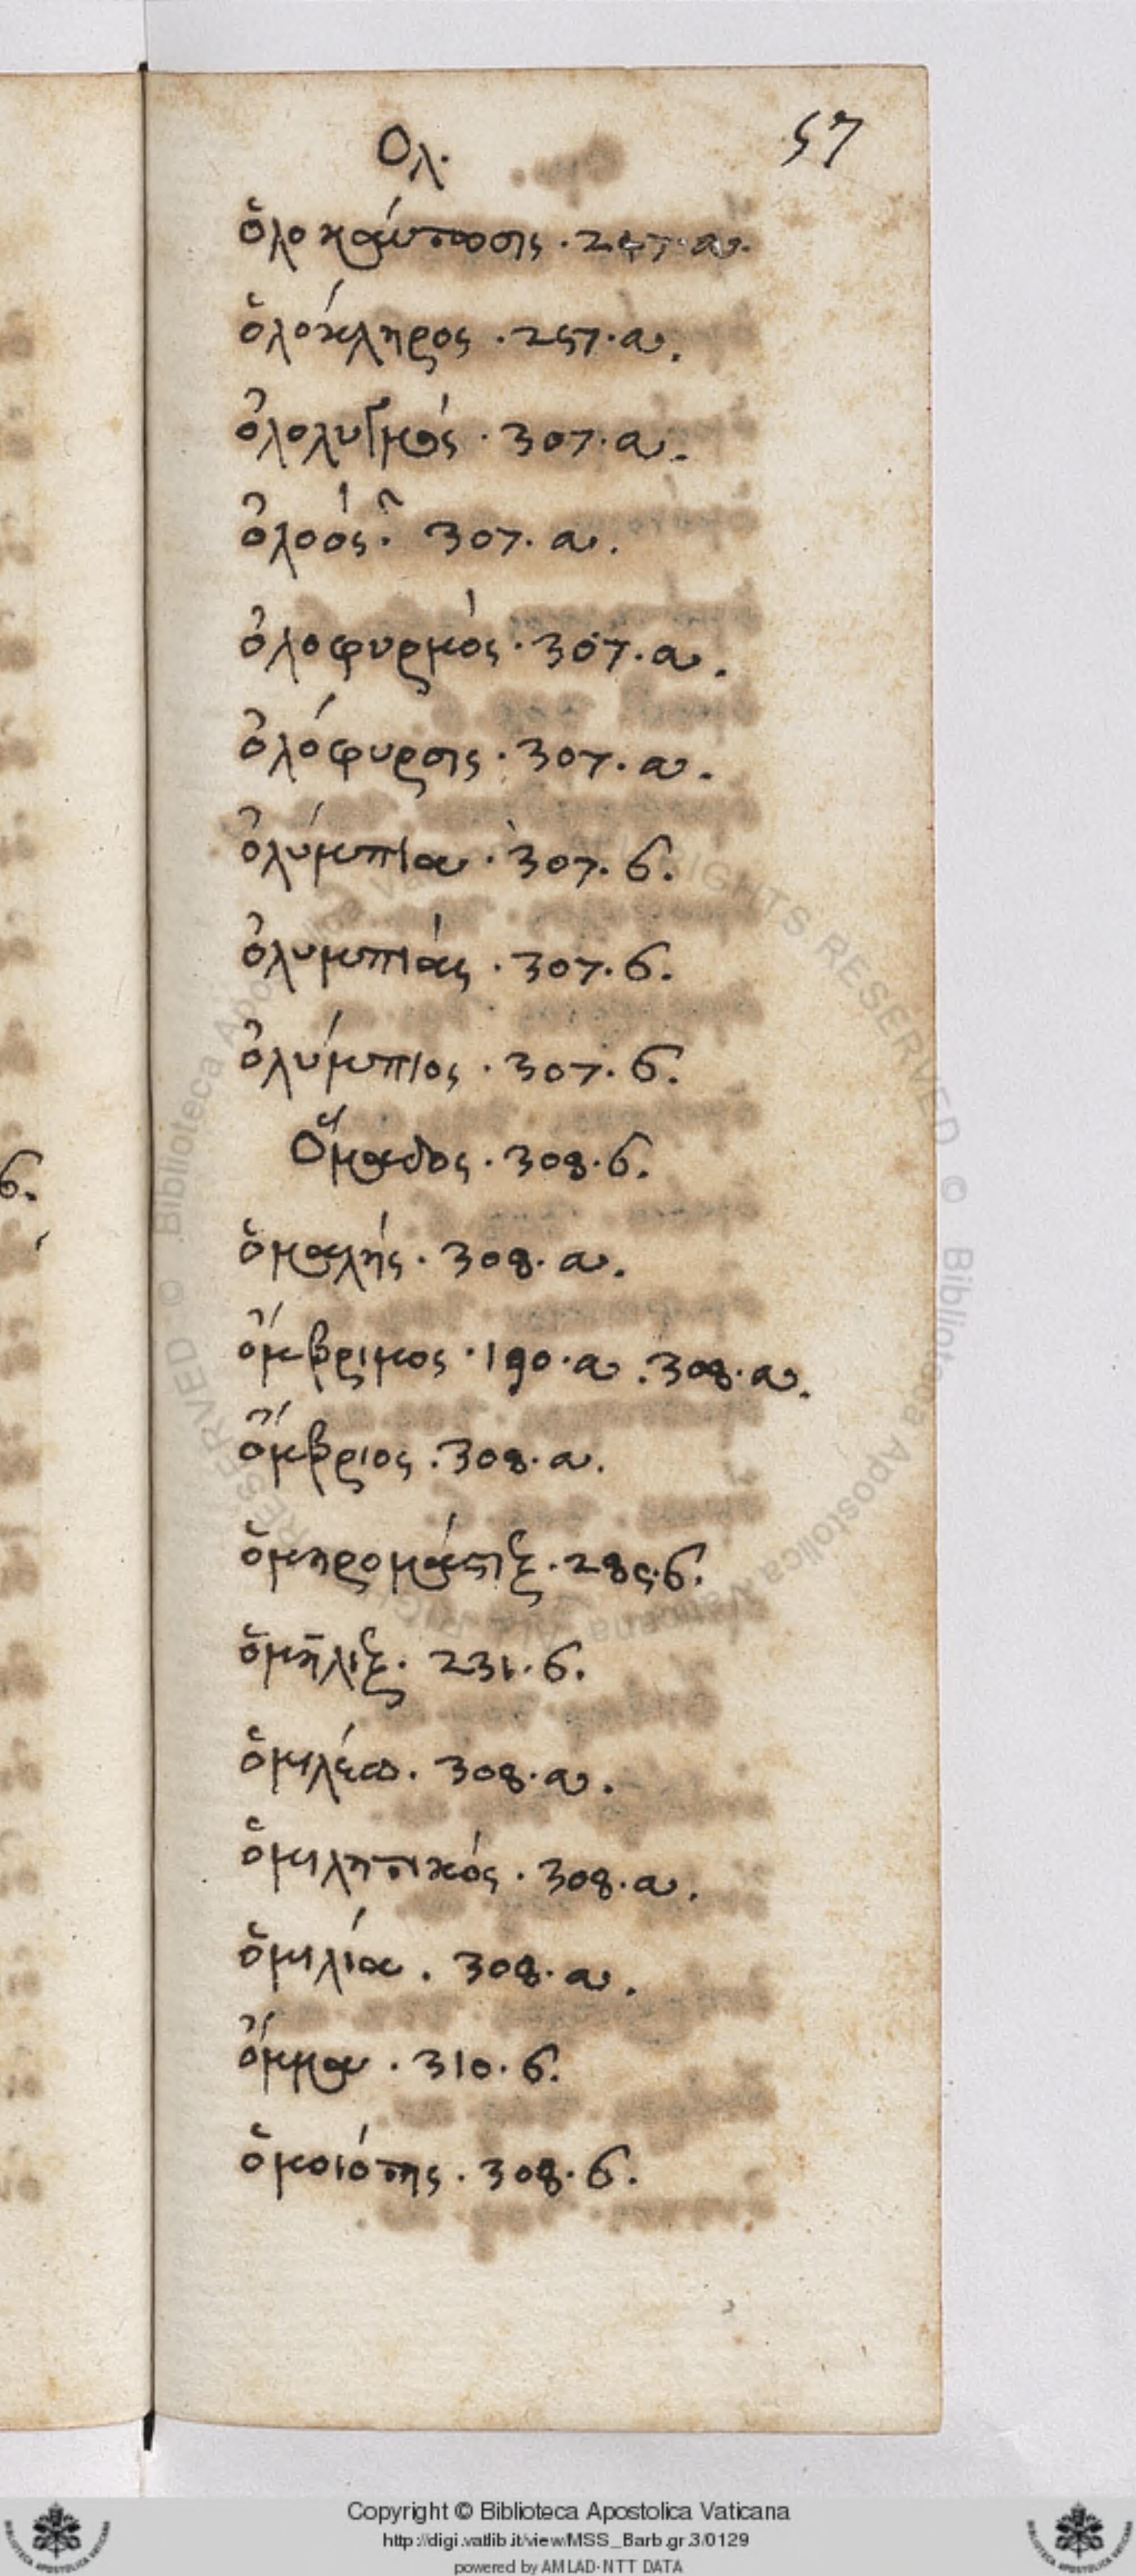 57
Ολ.
ὁλοκαύτωσις . 257. α.
ὁλόκληρος . 257. α.
ὀλολυγμός . 307. α.
ὀλοός . 307. α.
ὀλοφυρμός . 307. α.
ὀλόφυρσις . 307. α.
ὀλύμπια . 307. б.
ὀλυμπιάς . 307. б.
ὀλύμπιος . 307. б.
Ὅμαδος . 308. б.
ὁμαλής . 308. α.
ὄμβριμος . 190. α . 308. α.
ὄμβριος . 308. α.
ὁμηρομάστιξ . 285. б.
ὁμῆλιξ . 231. б.
ὁμιλέω . 308. α.
ὁμιλητικός . 308. α.
ὁμιλία . 308. α.
ὄμμα . 310. б.
ὁμοιότης . 308. б.
б.
Copyright © Biblioteca Apostolica Vaticana
http://digi.vatlib.it/view/MSS_Barb.gr.3/0129
powered by AMLAD-NTT DATA